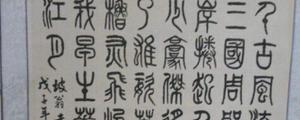 千古風流
三國周郎
岸捲起
少豪傑
了雄姿英
櫓灰飛
我早生華
江月
坡翁
戊子年